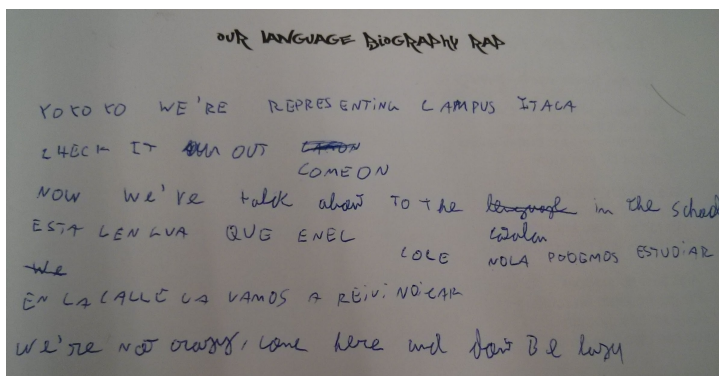 OUR LANGUAGE BIOGRAPHY RAP
YO YO YO WE'RE REPRESENTING CAMPUS ITACA
CHECK IT OUT
COME ON
NOW WE'VE talk about TO the language in the school
catalan
ESTA LENGUA QUE EN EL COLE NO LA PODEMOS ESTUDIAR
We
EN LA CALLE LA VAMOS A REIVINDICAR
We're not crazy, come here and don't Be lazy